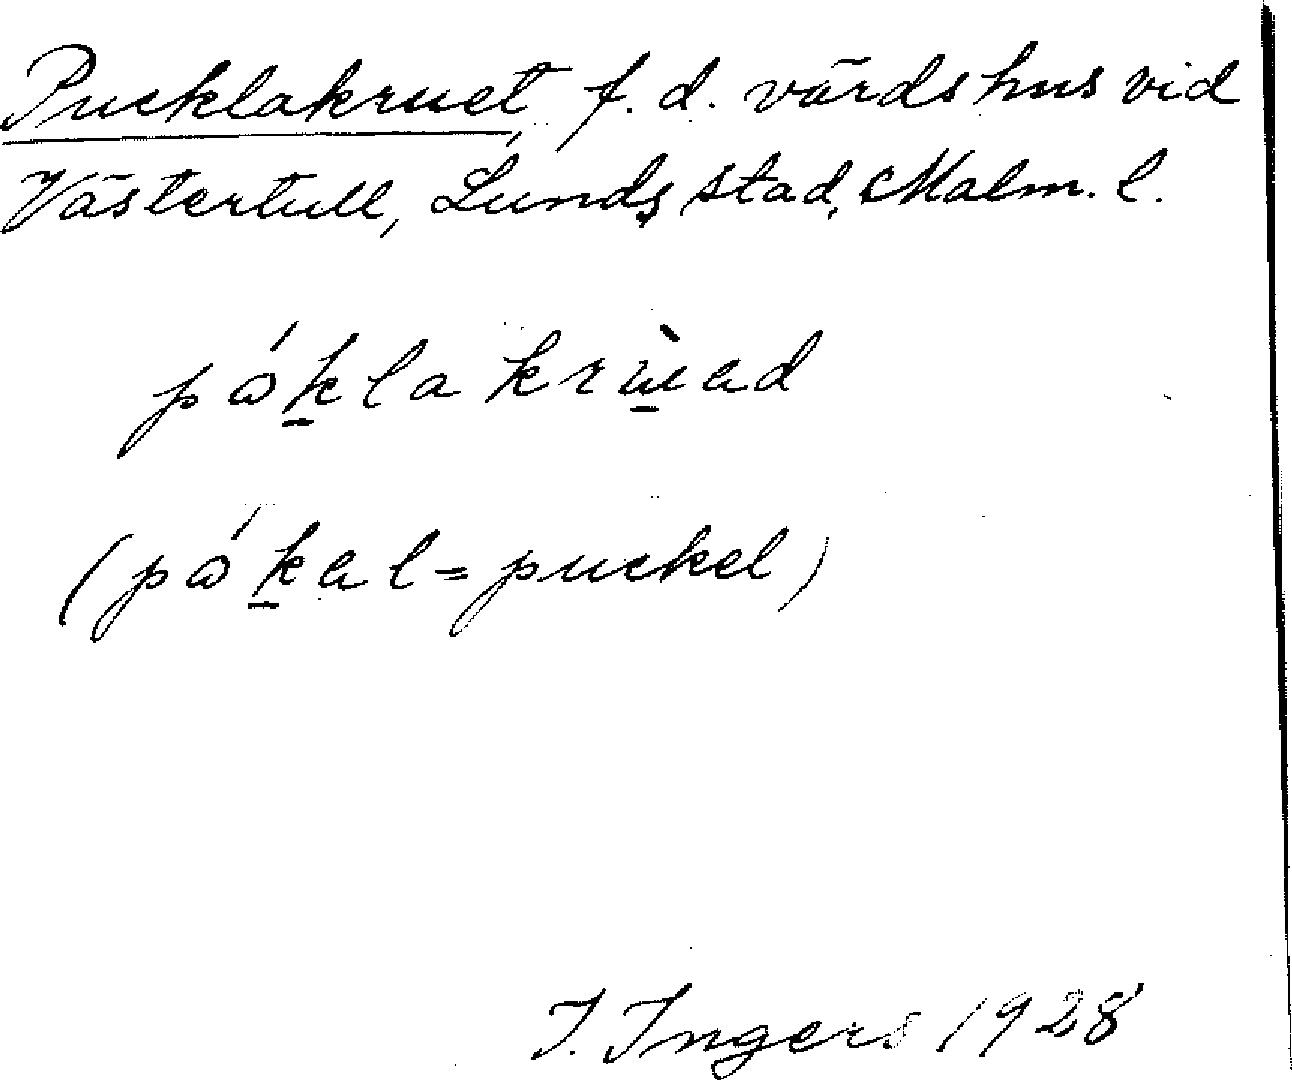 Pucklakruet, f. d. värdshus vid
Västertull, Lunds stad, Malm. l.
pákla krùad
(pákal = puckel)
I. Ingers 1928